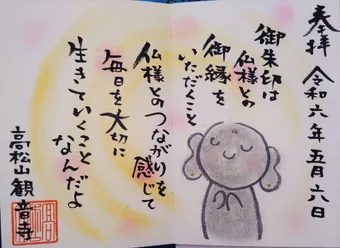 奉拝 令和六年五月六日
御朱印は
仏様との
御縁を
いただくこと
仏様とのつながりを感じて
毎日を大切に
生きていくこと
なんだよ
高松山観音寺